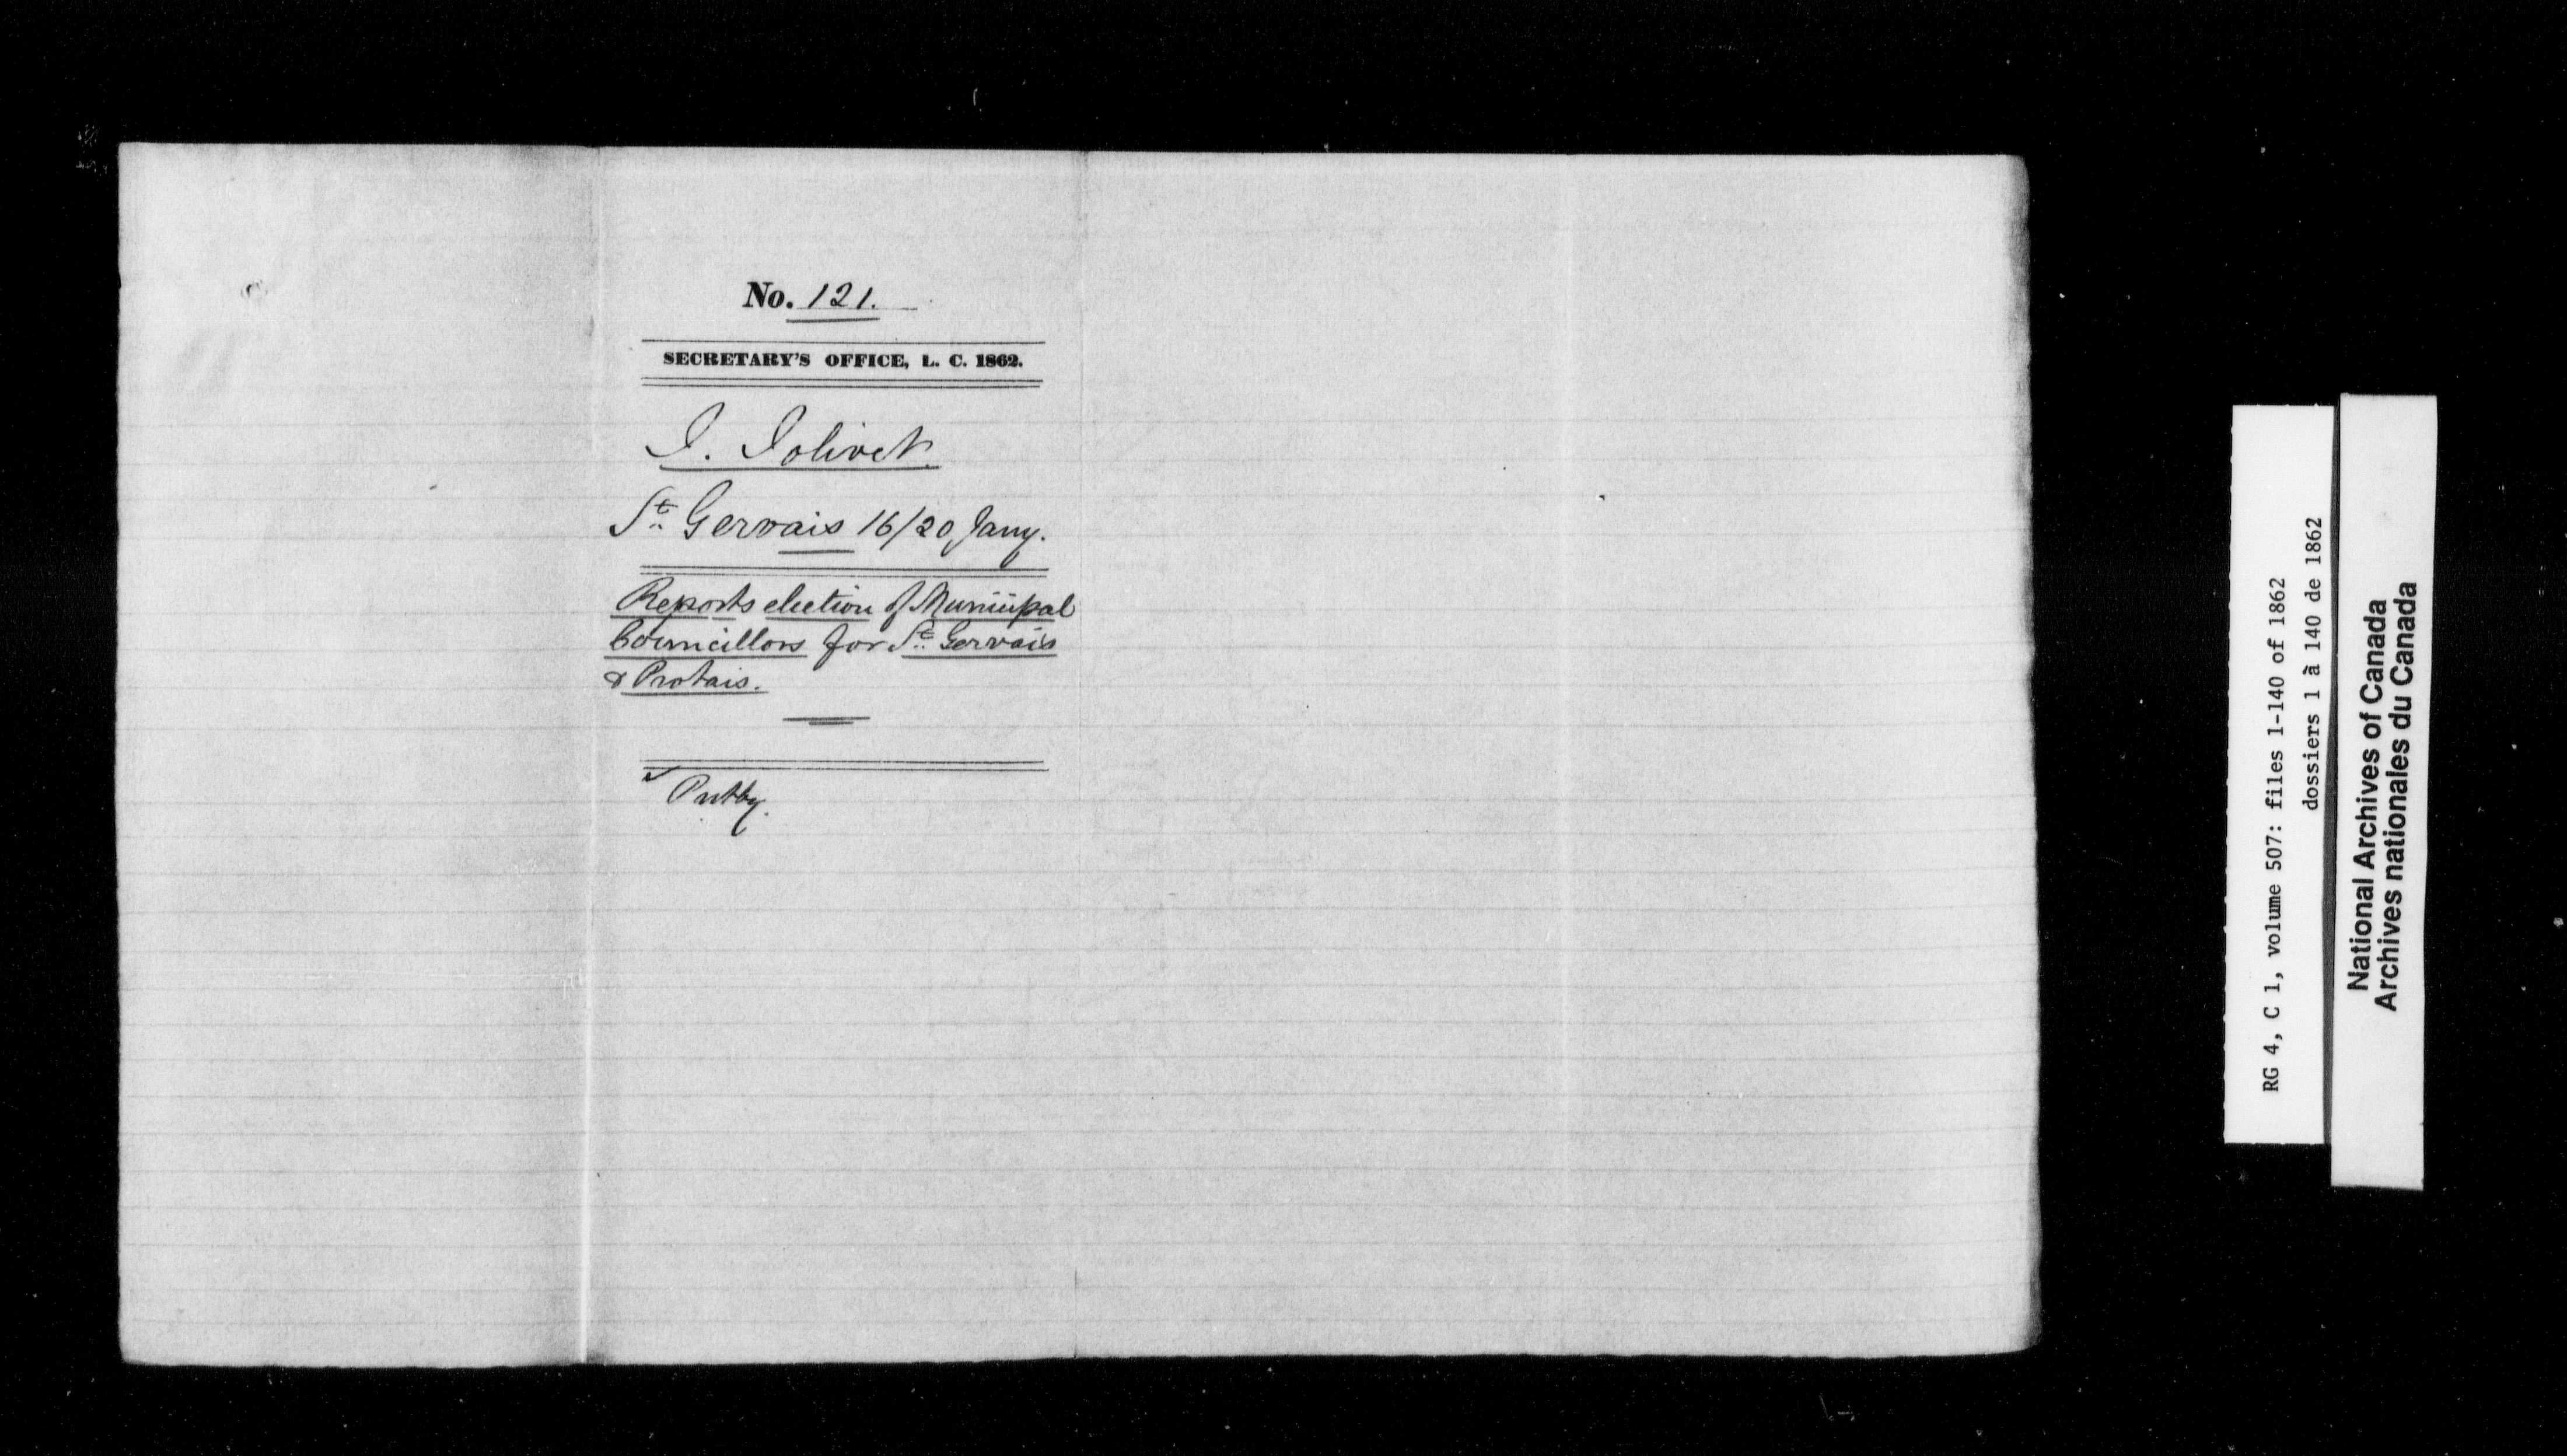 No. 121.
SECRETARY'S OFFICE, L. C. 1862.
J. Jolivet.
St. Gervais 16/20 Jany.
Reports election of Municipal
Councillors for St. Gervais
& Protais.
Putby.
RG 4, C 1, volume 507: files 1-140 of 1862
dossiers 1 à 140 de 1862
National Archives of Canada
Archives nationales du Canada